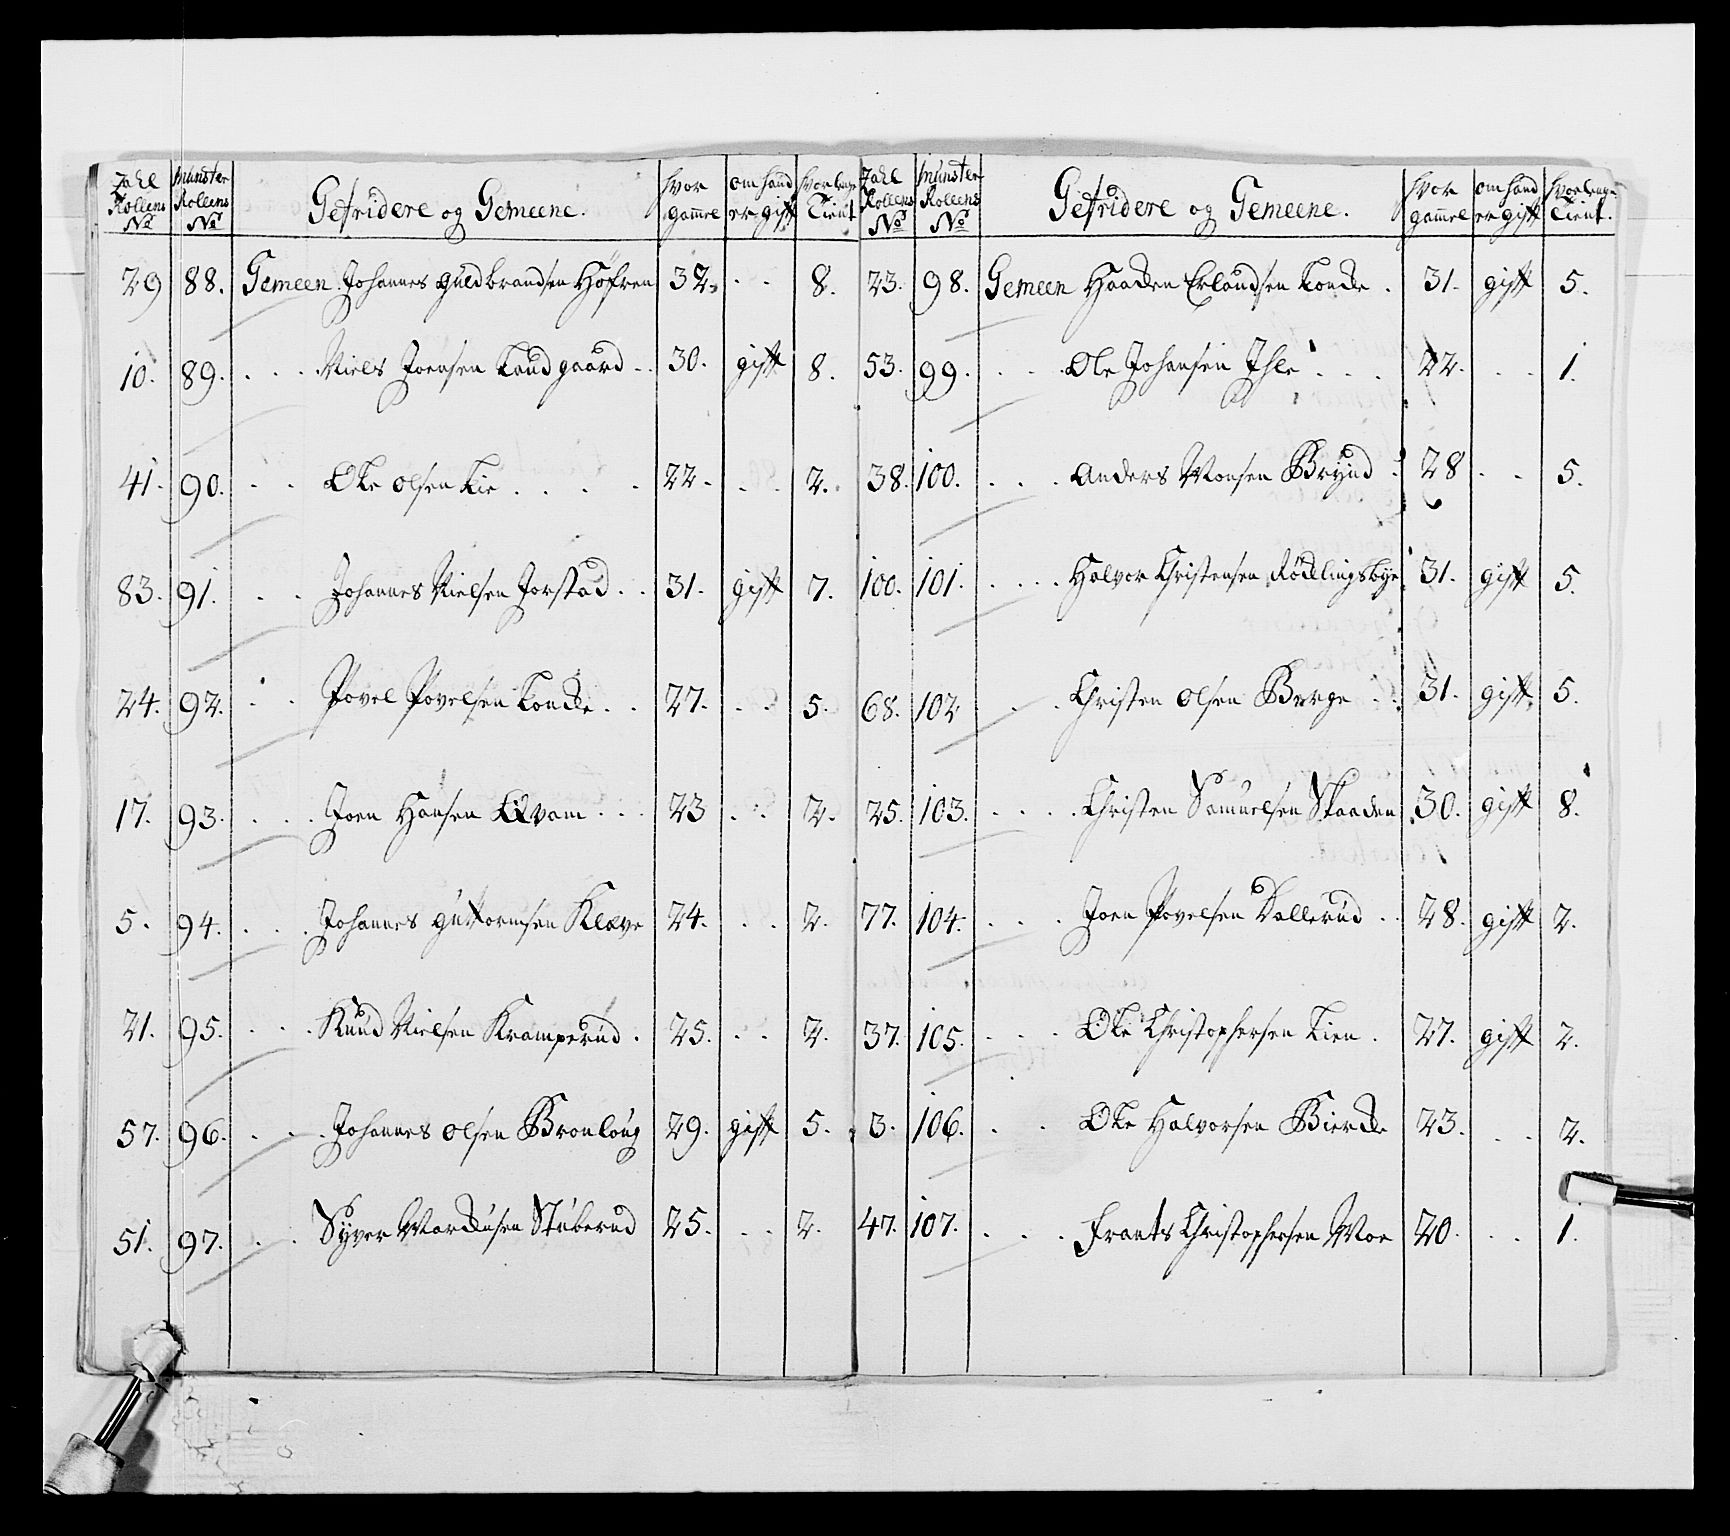 Zahl Rollens No | Munster Rollens No | Gefridere og Gemeene. | hvor gammel | om hand er gift | hvor lenge Tient
29 | 88. | Gemeen Johannes Guldbrandsen Höfren | 32. | . . | 8.
10. | 89. | . . . Niels Joensen Landgaard . . | 30. | gift | 8.
41. | 90. | . . Ole Olsen Lie . . . . | 22. | . . | 2.
83. | 91. | . . Johannes Nielsen Jorstad . . | 31. | gift | 7.
24. | 92. | . . Povel Povelsen Londe . . | 27. | . . | 5.
17. | 93. | . . . Joen Hansen Qvam . . . | 23 | . . | 2.
5. | 94. | . . . Johannes Guttormsen Kleve | 24. | . . | 2.
21. | 95. | . . . Knud Nielsen Kramperud . | 25. | . . | 2.
57. | 96. | . . . Johannes Olsen Bronlöug | 29. | gift | 5.
51. | 97. | . . Syver Marcusen Stuberud | 25. | . . | 2.
Zahl Rollens No | Munster Rollens No | Gefridere og Gemeene. | hvor gammel | om hand er gift | hvor lenge Tient.
23. | 98. | Gemeen Haaden Erlandsen Londe . | 31. | gift | 5.
53. | 99. | . . . Ole Johansen Ihle . . . | 22. | . . | 1.
38. | 100. | . . . Anders Monsen Brynd | 28 | . . | 5.
100. | 101. | . . . . Halvor Christensen Rödlingsbye | 31. | gift | 5.
68. | 102 | . . Christen Olsen Berge . . | 31. | gift. | 5.
25. | 103. | . . . . Christen Samuelsen Skaaden | 30. | gift | 8.
77. | 104. | . . . Joen Povelsen Dallerud . . | 28. | gift | 2.
37. | 105. | . . . Ole Christophersen Lien . | 27. | gift | 2.
3. | 106. | . . Ole Halvorsen Bierke | 23. | . . | 2.
47. | 107. | . . . Frants Christophersen Moe | 20. | . . | 1.